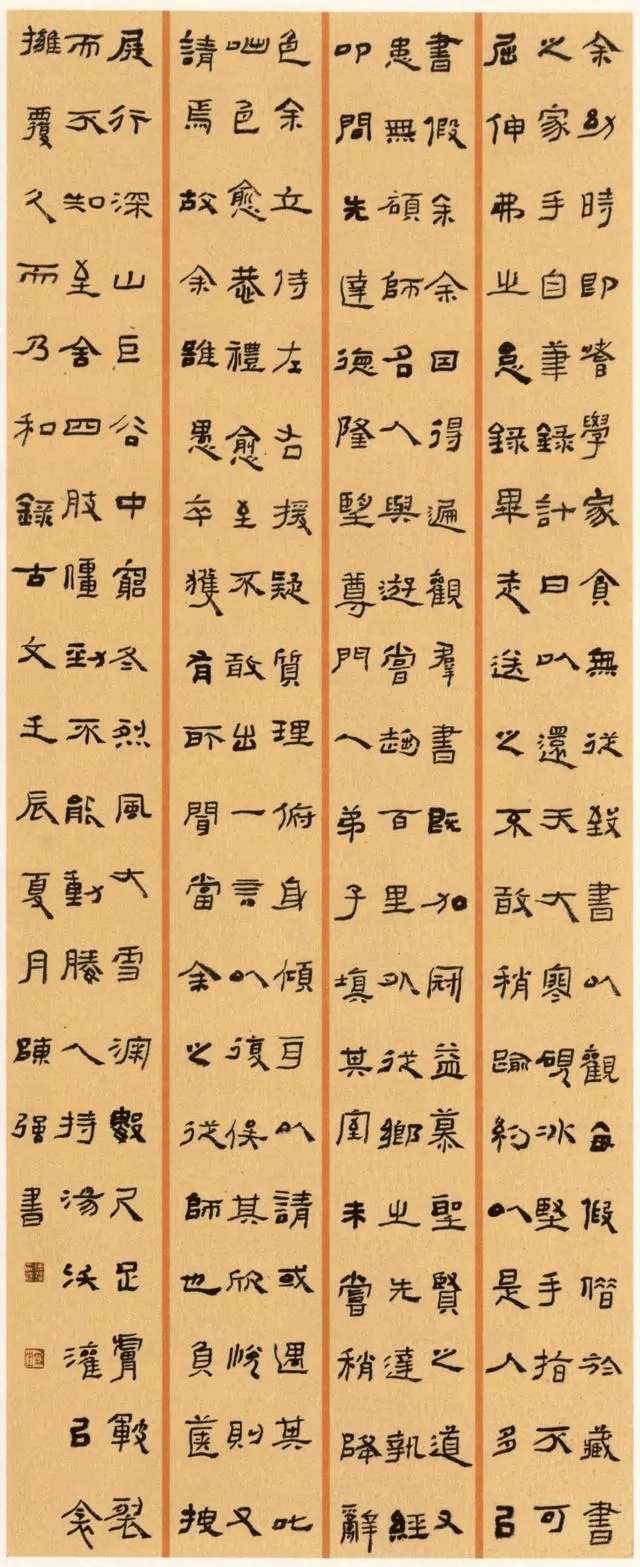 余幼時即嗜學家貧無從致書以觀每假借於藏書
之家手自筆錄計日以還天大寒硯冰堅手指不可
屈伸弗之怠錄畢走送之不敢稍踰約以是人多以
書假余余因得遍觀羣書既加冠益慕聖賢之道又
患無碩師名人與遊嘗趨百里外從鄉之先達執經
叩問先達德隆望尊門人弟子填其室未嘗稍降辭
色余立侍左右援疑質理俯身傾耳以請或遇其叱
咄色愈恭禮愈至不敢出一言以復俟其欣悅則又
請焉故余雖愚卒獲有所聞當余之從師也負篋拽
屣行深山巨谷中窮冬烈風大雪深數尺足膚皸裂
而不知至舍四肢僵勁不能動媵人持湯沃灌以衾
擁覆久而乃和錄古文壬辰夏月陳強書